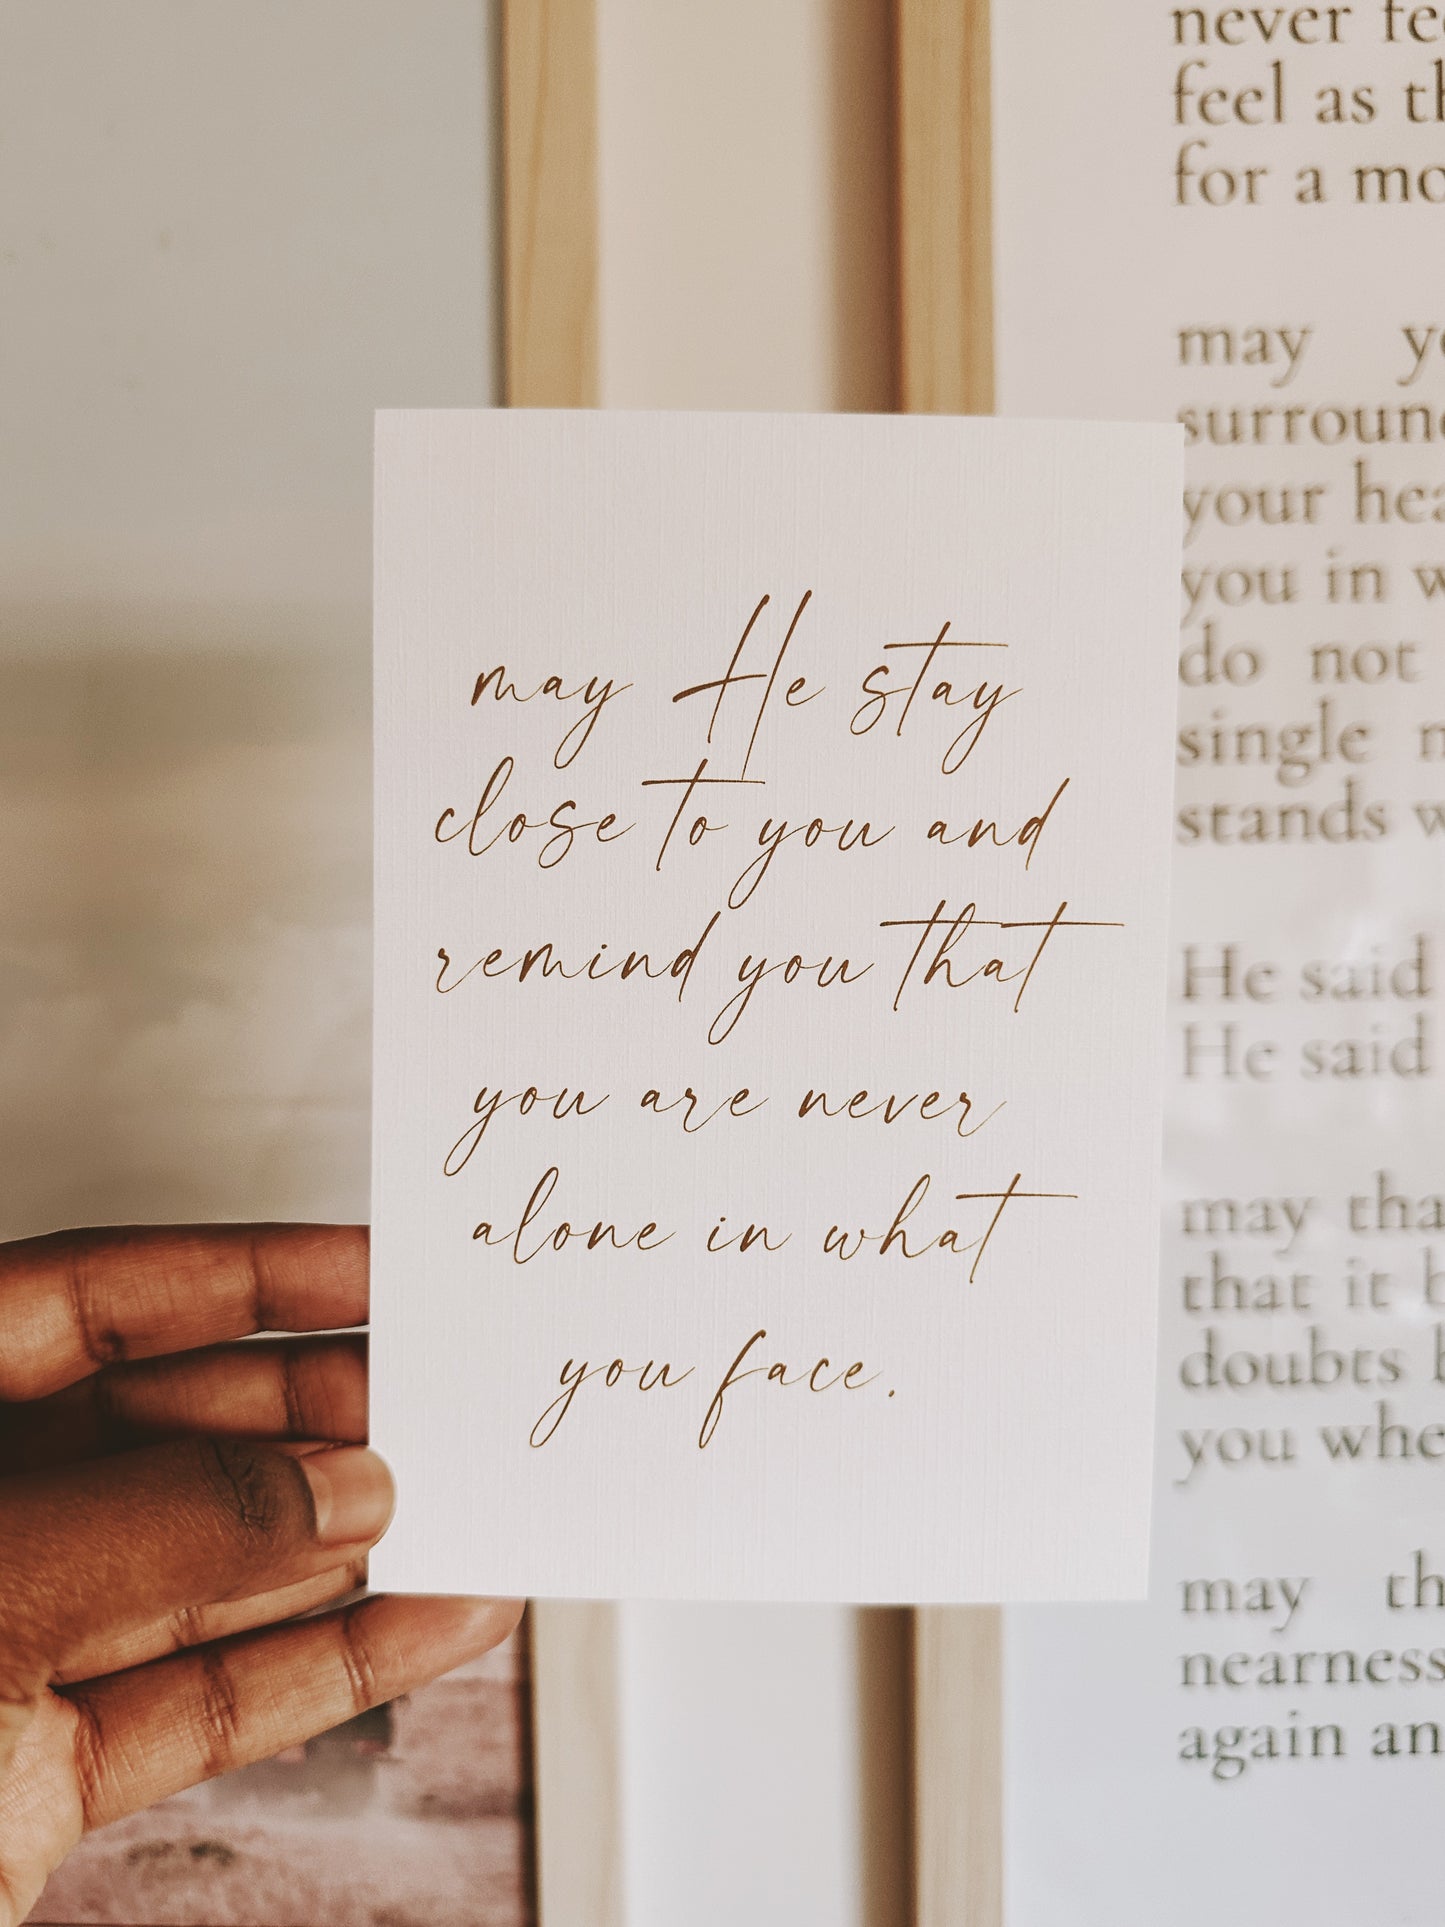 may He stay
close to you and
remind you that
you are never
alone in what
you face.
never
feel as
for a
may
surroun
your
you in
do not
single
stands
He said
He said
may
that it
doubts
you
may
nearness
again